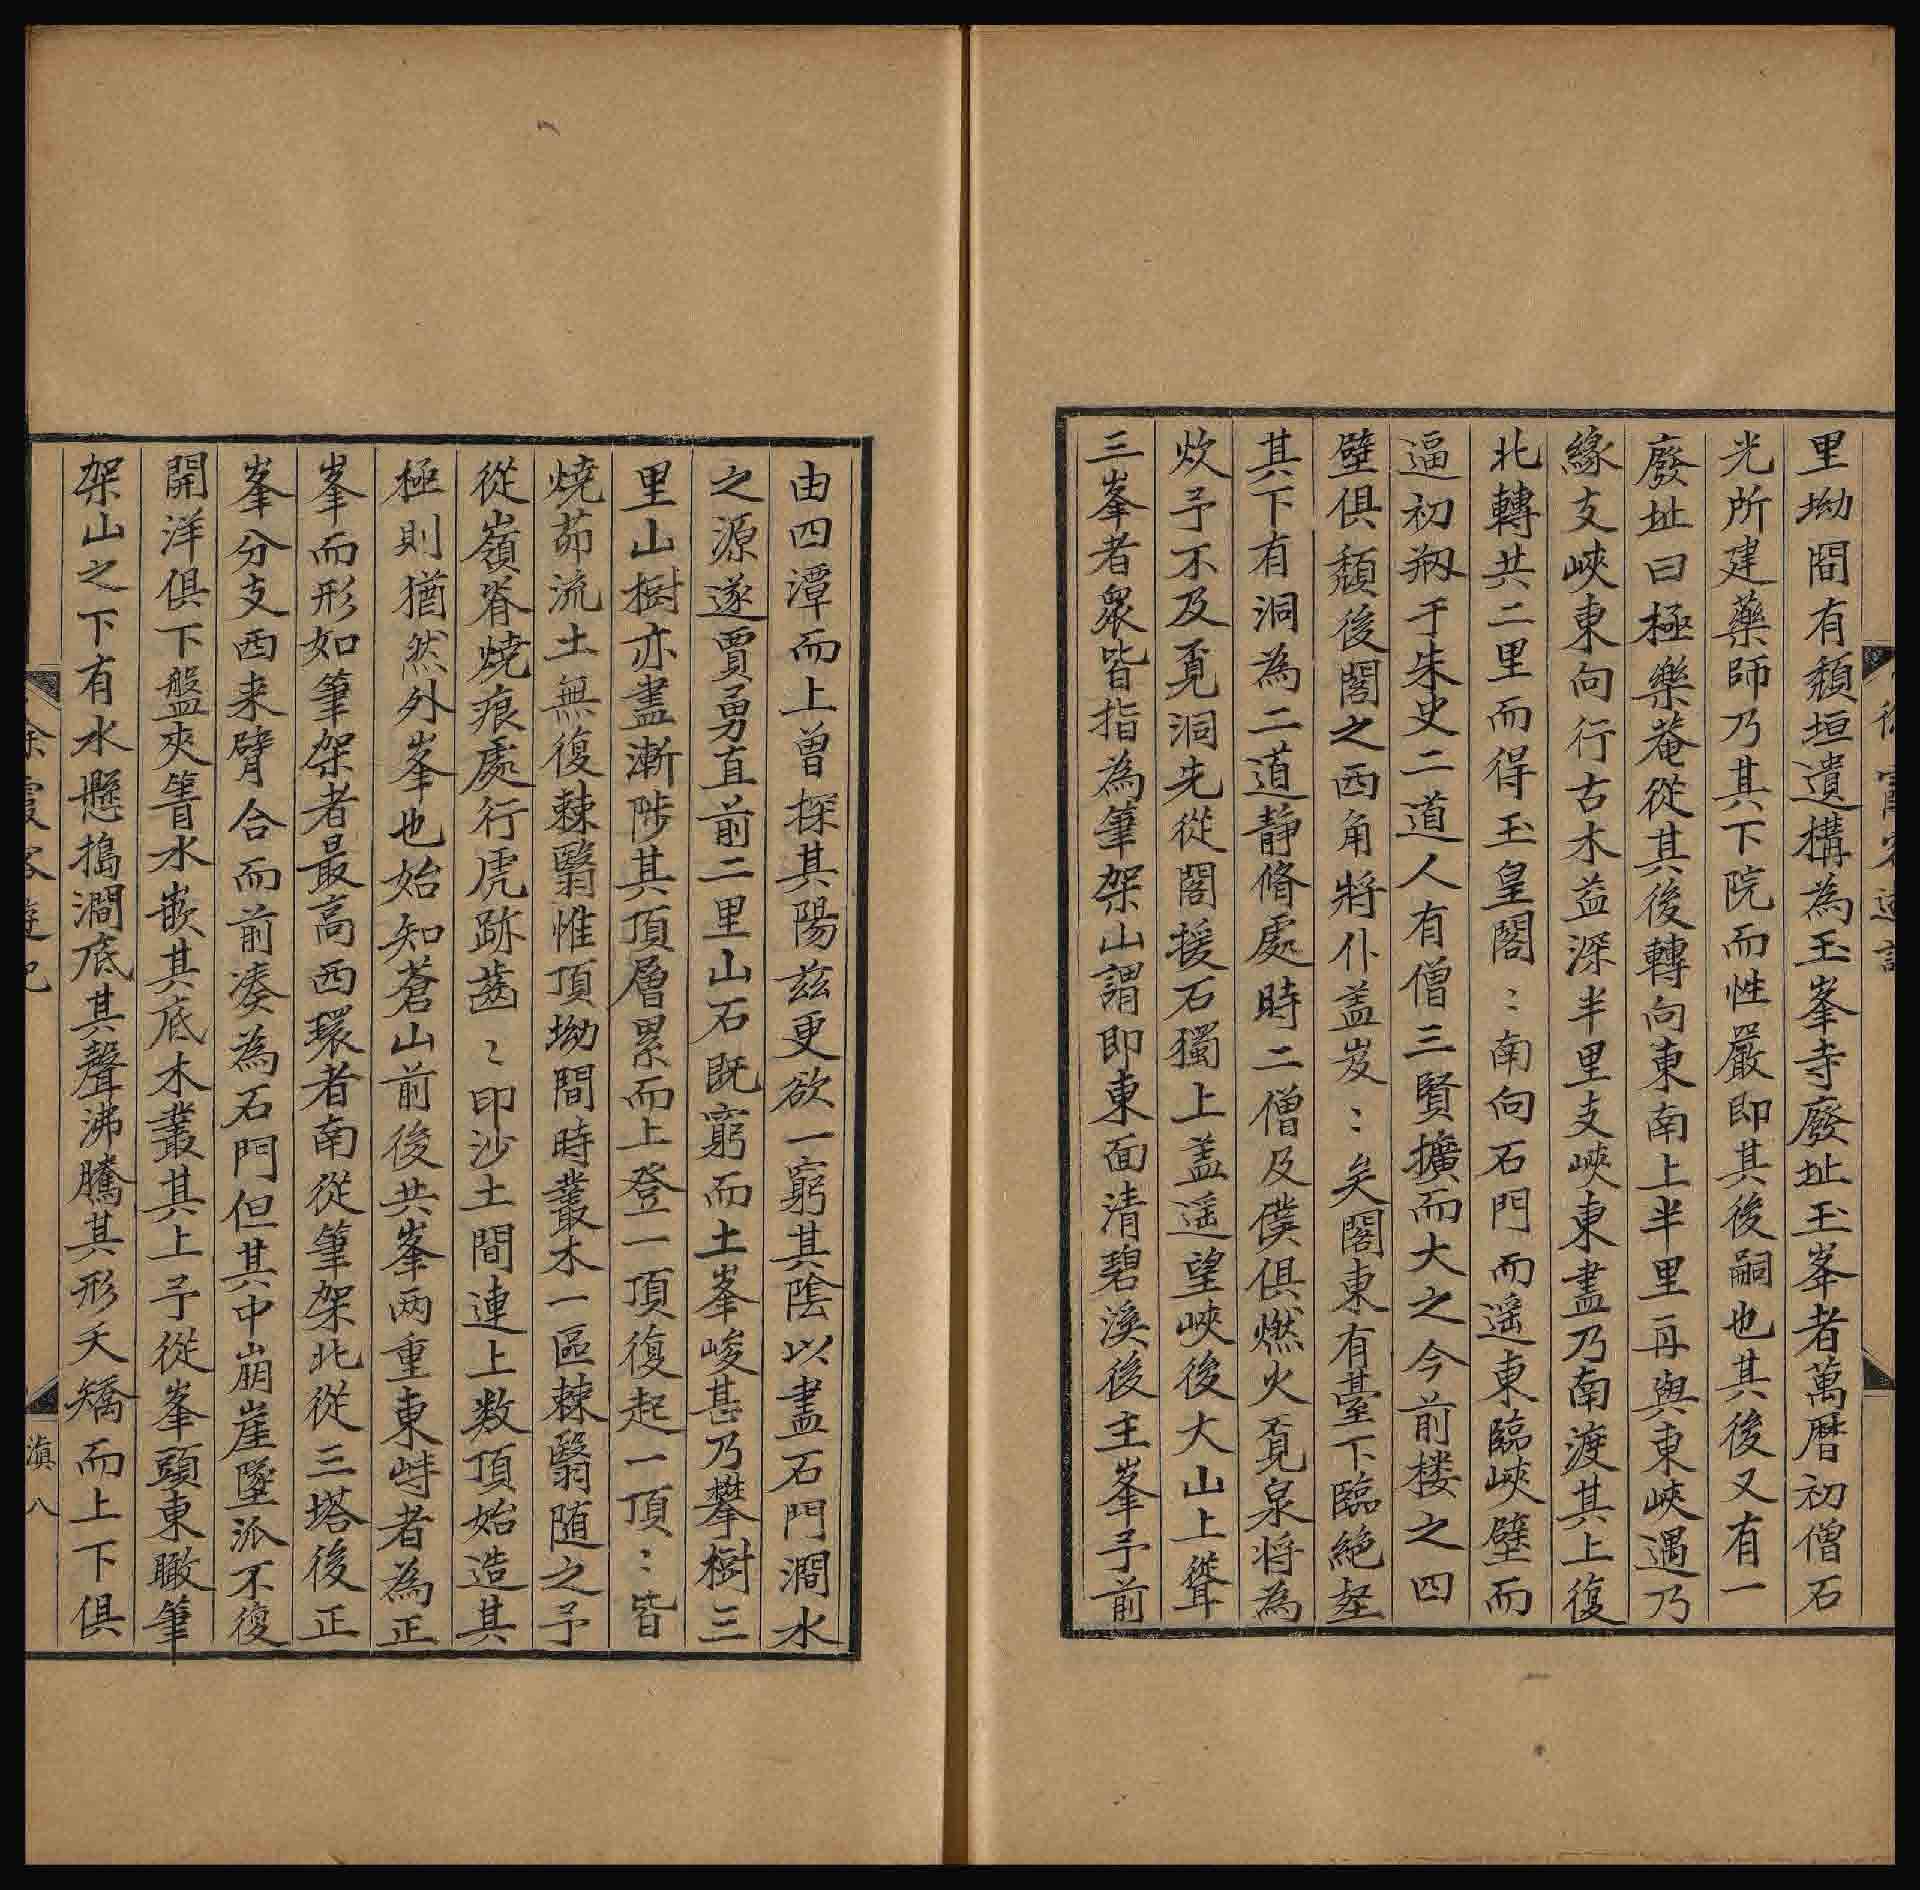 里坳間有頹垣遺構為玉峯寺廢址玉峯者萬曆初僧石
光所建藥師乃其下院而性嚴即其後嗣也其後又有一
廢址曰極樂菴從其後轉向東南上半里再與東峽遇乃
緣支峽東向行古木益深半里支峽東盡乃南渡其上復
北轉共二里而得玉皇閣〻南向石門而遥東臨峽壁而
逼初剏于朱史二道人有僧三賢擴而大之今前楼之四
壁俱頹後閣之西角將仆盖岌〻矣閣東有臺下臨絶壑
其下有洞為二道静脩處時二僧及僕俱燃火覔泉将為
炊予不及覔洞先從閣援石獨上盖遥望峽後大山上聳
三峯者衆皆指為筆架山謂即東面清碧溪後主峯予前
由四潭而上曽探其陽兹更欲一窮其陰以盡石門澗水
之源遂賈勇直前二里山石既窮而土峯峻甚乃攀樹三
里山樹亦盡漸陟其頂層累而上登一頂復起一頂〻皆
燒茆流土無復棘翳惟頂坳間時叢木一區棘翳随之予
從嶺脊燒痕處行虎跡齒〻印沙土間連上数頂始造其
極則猶然外峯也始知蒼山前後共峯两重東峙者為正
峯而形如筆架者最高西環者南從筆架北從三塔後正
峯分支西来臂合而前湊為石門但其中崩崖墜派不復
開洋俱下盤夾箐水嵌其底木叢其上予從峯頭東瞰筆
架山之下有水懸搗澗底其聲沸騰其形夭矯而上下俱
徐霞客遊記
滇八